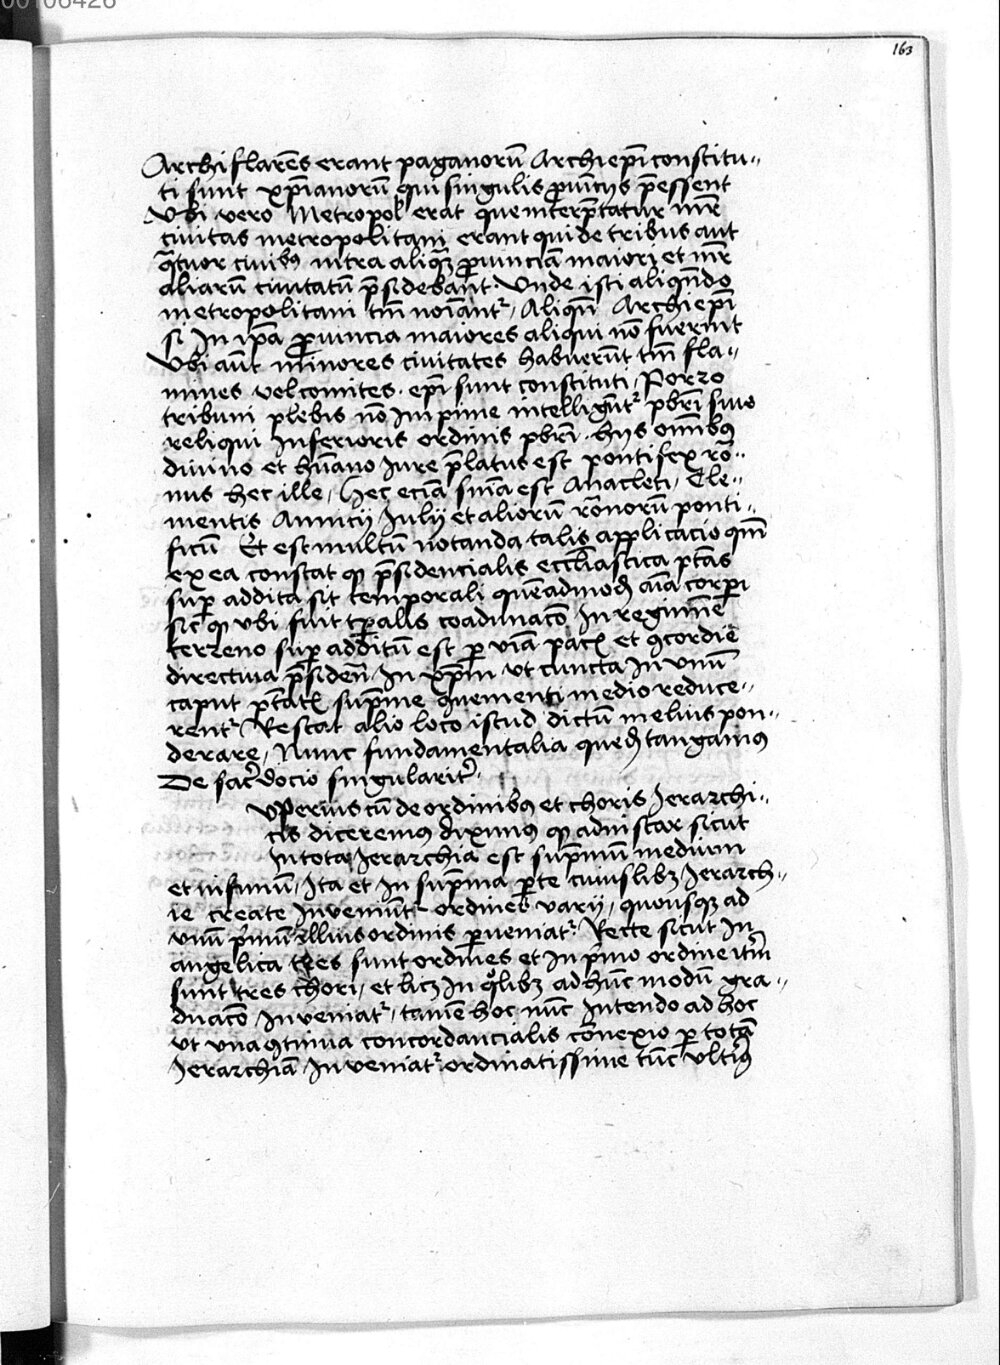 00106426
163
Archiflarēs erant paganorū Archiepī constitu-
ti sunt xp̄ianorū qui singulis ꝓuincijs p̄essent
Vbi vero Metropol̄ erat que interp̄tatur mr̄
ciuitas metropolitani erant qui de tribus aut
q̄tuor ciuibꝰ intra aliqū ꝓuinciā maiori et mr̄
aliarū ciuitatū p̄sidebant Vnde isti aliqn̄do
metropolitani tm̄ noīant᷑ / Aliqn̄ Archiepī
si In ip̄a ꝓuincia maiores aliqui nō fuerint
Vbi aūt minores ciuitates habuerūt tm̄ fla-
mines vel comites epī sunt constituti / Porro
tribuni plebis nō Impinie intelligūt᷑ pbrī siue
reliqui Inferioris ordinis pbrī hijs oīnibꝰ
diuino et hūano Iure p̄latus est pontifex ro-
nus hec ille / Hec eciā sn̄ia est Anacleti / Cle-
mentis Anicij Iulij et aliorū rōnorū ponti-
ficū Et est multū notanda talis applicacio qm̄
ex ea constat ꝙ p̄sidencialis eccl̄iastica ptās
suꝑ addita sit temporali quēadmoḋ aīa corpi
sic ꝙ vbi fuit tp̄alis coadunacō In regimine
terreno suꝑ additū est ꝑ viā pacꝭ et ꝯcordie
directiua p̄sidēn In xp̄m vt cuncta In vnū
caput ptātꝭ sup̄me quementi medio reduce-
rent᷑ Restat alio loco istud dictū melius pon-
derare / Nunc fundamentalia queḋ tangamꝰ
De sac̄docio singularit᷑
vPerius cū de ordinibꝰ et choris Ierarchi-
cis diceremꝰ diximꝰ ꝙ ad instar sicut
In tota Ierarchia est sup̄mū mediūm
et infimū / Ita et In sup̄ma ꝑte cuiuslibꝫ Ierarch-
ie create Inveniūt᷑ ordines varij / quousqꝫ ad
vnū p̄mū illius ordinis ꝑveniat᷑ Recte sicut In
angelica tres sunt ordines et In p̄mo ordine itm̄
sunt tres chori / et licꝫ In qͦlibꝫ ad hūc modū gra-
duacō Inveniat᷑ / tamē hoc nūc Intendo ad hoc
vt vna ꝯtinua concordancialis cōnexio ꝑ totā
Ierarchiā Inveniat᷑ ordinatissime tūc vltiꝰ